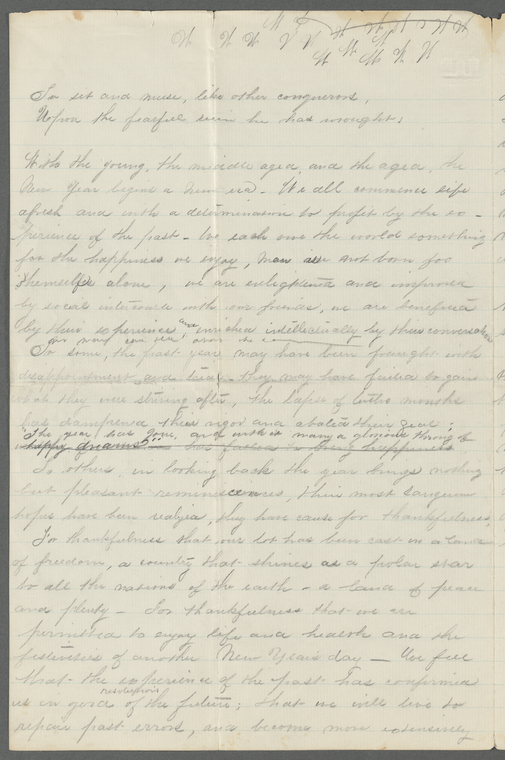 To sit and muse, like other conquerors,
Upon the fearful ruin he has wrought.
With the young, the middle aged, and the aged, the
New Year begins a new era - We all commence life
afresh and with a determination to profit by the ex-
perience of the past - We each owe the world something
for the happiness we enjoy, man not born for
themselves alone, we are enlightened and improved
by social intercourse with our friends, we are benefited
by their experience and enriched intellectually by their conversation
To some, the past year may have been fraught with
disappointment and trial - they may have failed to gain
what they were striving after, the lapse of twelve months
has dampened their vigor and abated their zeal;
"The year has gone, and with it many a glorious throng of
happy dreams"
To others, in looking back the year brings nothing
but pleasant reminiscences, their most sanguine
hopes have been realized, they have cause for thankfulness,
For thankfulness that our lot has been cast in a land
of freedom, a country that shines as a polar star
to all the nations of the earth - a land of peace
and plenty - For thankfulness that we are
permitted to enjoy life and health and the
festivities of another New Year's day - We feel
that the experience of the past has confirmed
us in good resolutions of the future; that we will live to
repair past errors, and become more extensively